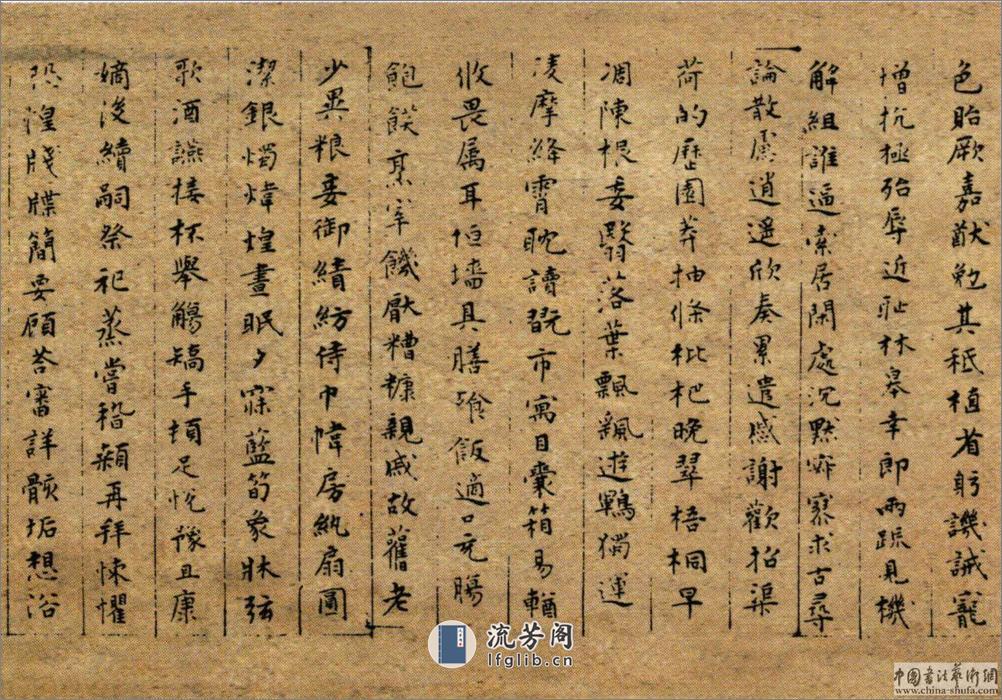 色貽厥嘉猷勉其秖植省躬譏誡寵
增抗極殆辱近恥林皋幸即兩疏見機
解組誰逼索居閑處沉默寂寥求古尋
論散慮逍遥欣奏累遣慼謝歡招渠
荷的歷園莽抽條枇杷晚翠梧桐早
凋陳根委翳落葉飄颻遊鵾獨運
凌摩絳霄耽讀翫市寓目囊箱易輶
攸畏属耳垣墻具膳飡飯適口充腸
飽飫烹宰饑厭糟糠親戚故舊老
少異粮妾御績紡侍巾帷房紈扇圓
潔銀燭煒煌晝眠夕寐藍筍象牀弦
歌酒讌接杯舉觴矯手頓足悅豫且康
嫡後續嗣祭祀蒸嘗稽顙再拜悚懼
恐惶牋牒簡要顧荅審詳骸垢想浴
流芳阁
lfglib.cn
中国書法藝術網
www.china-shufa.com